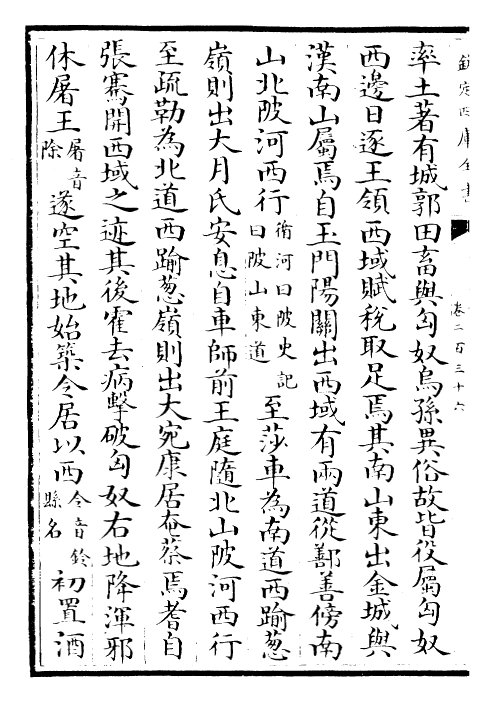 欽定四庫全書
卷二百三十六
率土著有城郭田畜與匈奴烏孫異俗故皆役屬匈奴
西邊日逐王領西域賦稅取足焉其南山東出金城與
漢南山屬焉自玉門陽關出西域有兩道從鄯善傍南
山北陂河西行循河曰陂史記曰陂山東道至莎車為南道西踰葱
嶺則出大月氏安息自車師前王庭隨北山陂河西行
至疏勒為北道西踰葱嶺則出大宛康居奄蔡焉耆自
張騫開西域之迹其後霍去病擊破匈奴右地降渾邪
休屠王屠音除遂空其地始築令居以西令音鈴縣名初置酒